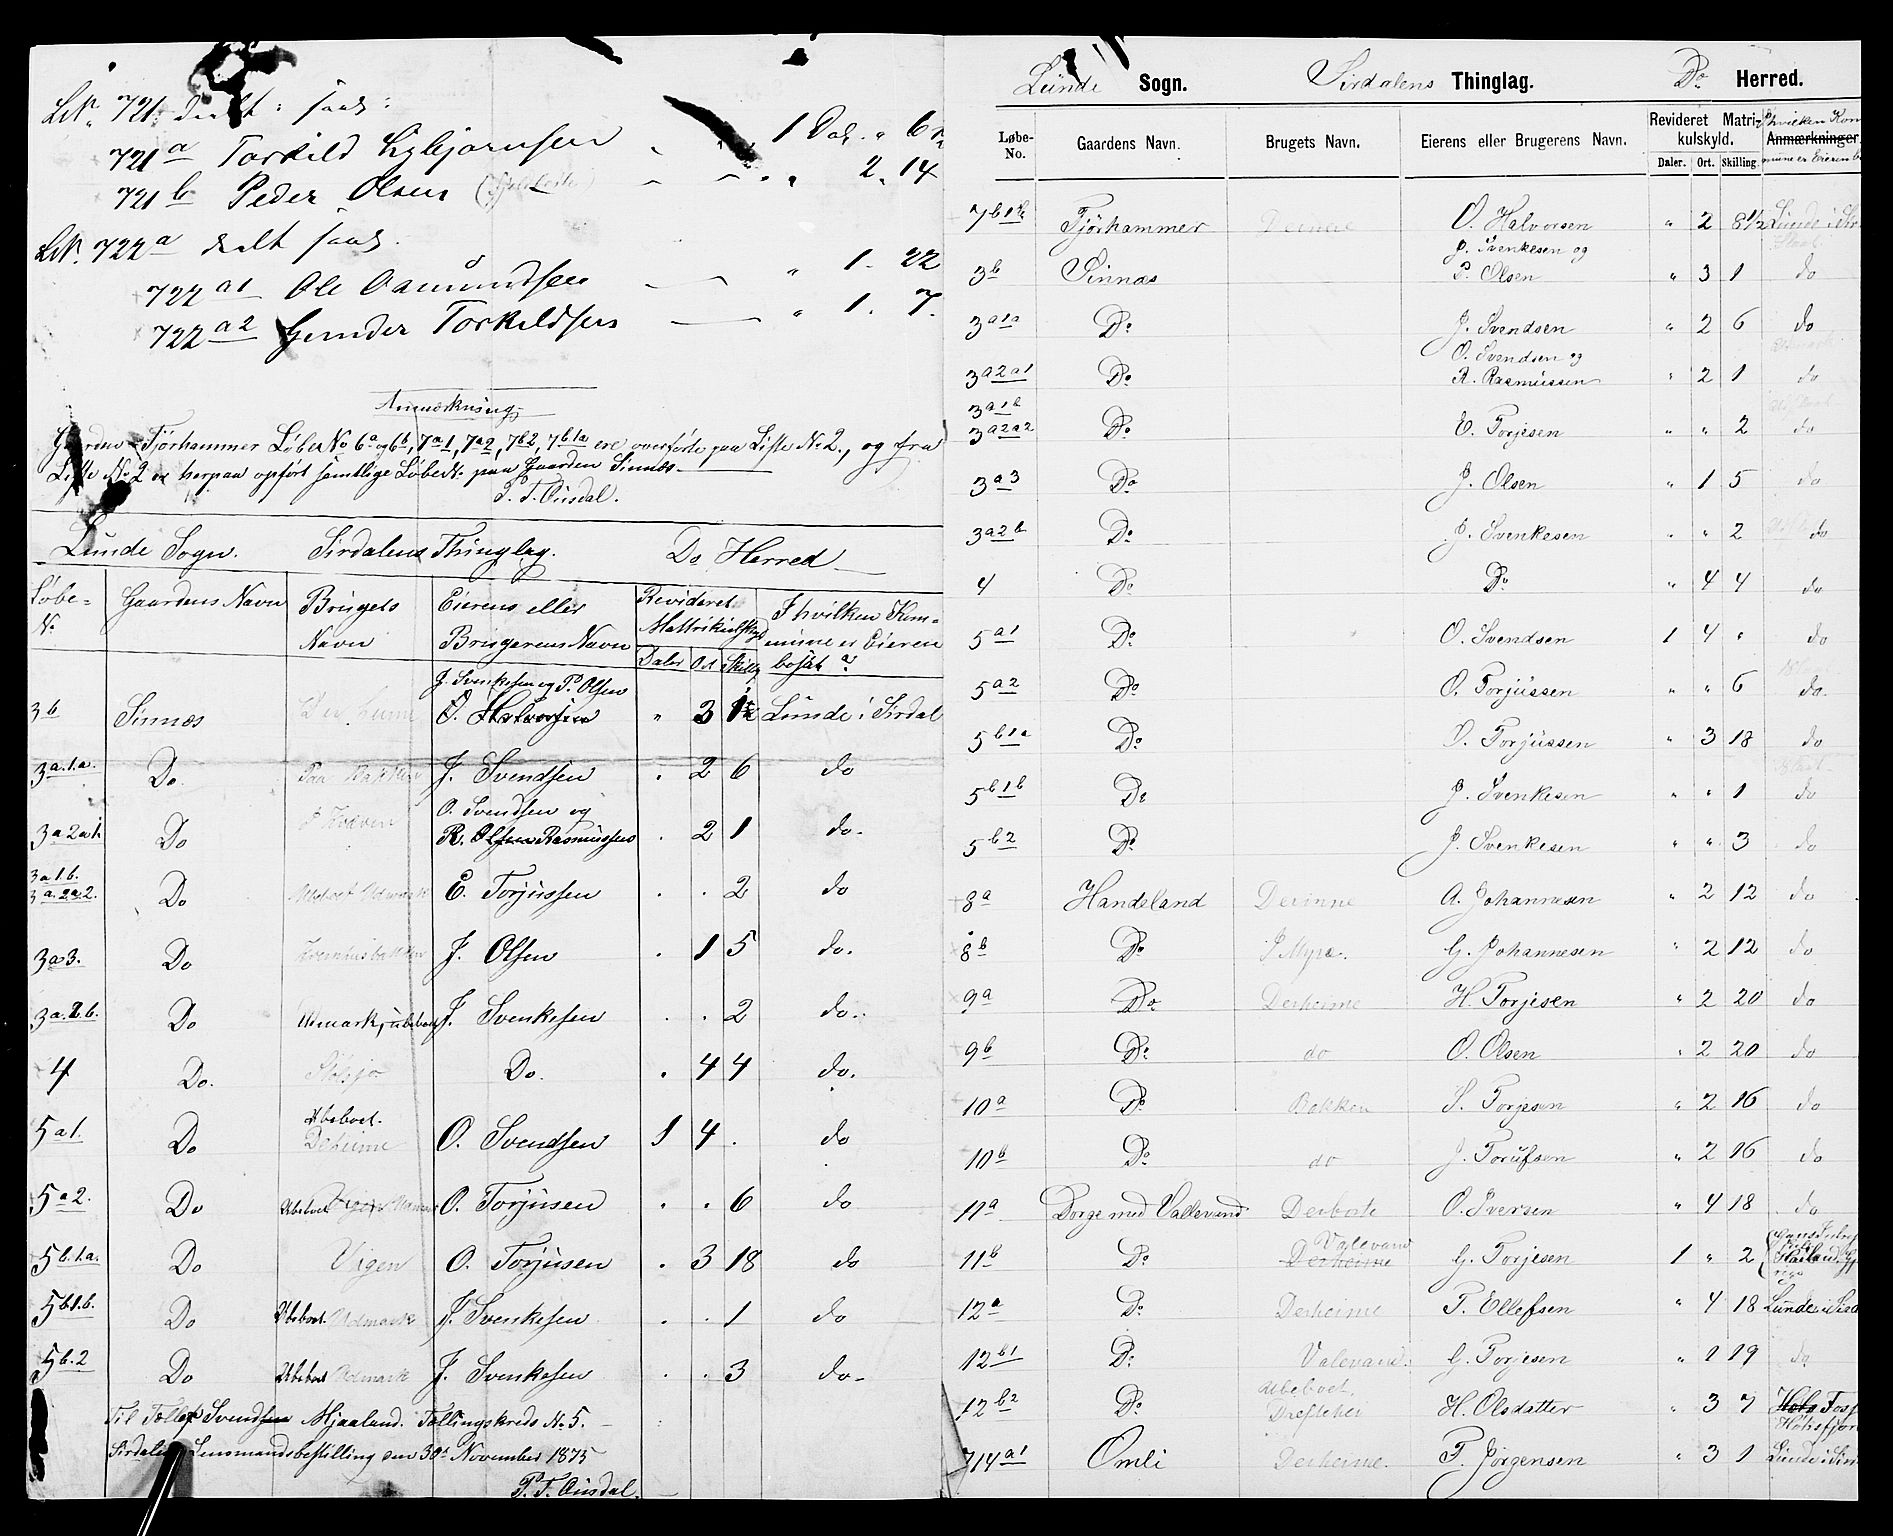 LN. 721 deelt saal:
721a Torkild Esbjørnsen " 1 Dal. " 6
721b Peder Olsen " 2. 14
LN. 722a delt saal.
722a1 Ole Aamundsen " 1. 22
722a2 Gunder Torkildsen " 1. 7.
Anmærkning,
Gaarden Tjørhammer LøbeNo 6a og 6b, 7a1, 7a2, 7b2, 7b1a ere overførte paa Liste No 2., og fra
Liste No 2 er herpaa opført samtlige LøbeNo. paa Gaarden Sinnæs.
P. T. Ousdal.
Lunde Sogn. Sirdalens Thinglag. Do Herred
Løbe-No Gaardens Navn Brugets Navn Eierens eller Brugerens Navn Revideret Matrikulskyld Daler Ort Skillg I hvilken Kommune er Eieren bosat?
3b Sinnæs J. Svenkesen og P. Olsen O. Halvorsen " 3 1 Lunde i Sirdal
3a.1.a. Do Paa Bakken J. Svendsen . 2 6 do
3a2a1. Do O. Svendsen og R. Olsen Rasmussen . 2 1 do.
3a1b. 3a.2a2. Do Ubeboet Udmark E. Torjussen . . 2 do
3a3. Do J. Olsen . 1 5 do.
3a.2.b. Do Udmark, ubeboet J. Svenkesen . . 2 do.
4 Do. Do. . 4 4 do.
5a1. Do Ubeboet. Deheime O. Svendsen 1 4 . do
5a2. Do Ubeboet O. Torjusen . . 6 do
5b.1.a. Do Vigen O. Torjusen . 3 18 do
5b1.b. Do Ubeboet Udmark J. Svenkesen . . 1 do
5b.2 Do Ubeboet Udmark J. Svenkesen . . 3 do.
Til Tollef Svendsen Mjaaland. Tællingskreds No. 5.
Sirdalens Lensmandsbestilling den 30te November 1875
P. T. Ousdal.
Lunde Sogn. Sirdalens Thinglag. Do Herred.
Løbe-No. Gaardens Navn. Brugets Navn. Eierens eller Brugerens Navn. Revideret Matrikulskyld. Daler. Ort. Skilling. Anmærkninger
I hvilken Kommune er Eieren b
7b1b Tjørhammer O. Halvorsen " 2 8 1/2 Lunde i Sir
3b Sinnæs J. Svenkesen og P. Olsen " 3 1 do
3a1a Do J. Svendsen " 2 6 do
3a2a1 Do O. Svendsen og R. Rasmussen " 2 1 do
3a1b 3a2a2 Do E. Torjesen " " 2 do
3a3 Do J. Olsen " 1 5 do
3a2b Do J. Svenkesen " " 2 do
4 Do Do " 4 4 do
5a1 Do O. Svendsen 1 4 " do
5a2 Do O. Torjussen " " 6 do.
5b1a Do O. Torjussen " 3 18 do
5b1b Do J. Svenkesen " " 1 do
5b2 Do J. Svenkesen " " 3 do
8a Handeland Derinne A. Johannesen " 2 12 do
8b Do I Myra. G. Johannesen " 2 12 do
9a Do Derheime H. Torjesen " 2 20 do
9b Do do O. Olsen " 2 20 do
10a Do Bakken S. Torjesen " 2 16 do
10b Do do J. Torufsen " 2 16 do
11a Dorge med Vallevand Derborte O. Iversen " 4 18 do
11b Do Valevand Derheime G. Torjesen 1 " 2
12a Do Derheime T. Ellefsen " 4 18 Lunde i Sird
12b1 Do Valevand. G. Torjesen " 1 19 do
12b2 Do Ubeboet. H. Olsdatter " 3 7
714a1 Omli Derheime. T. Jørgensen " 3 1 Lunde i Sir